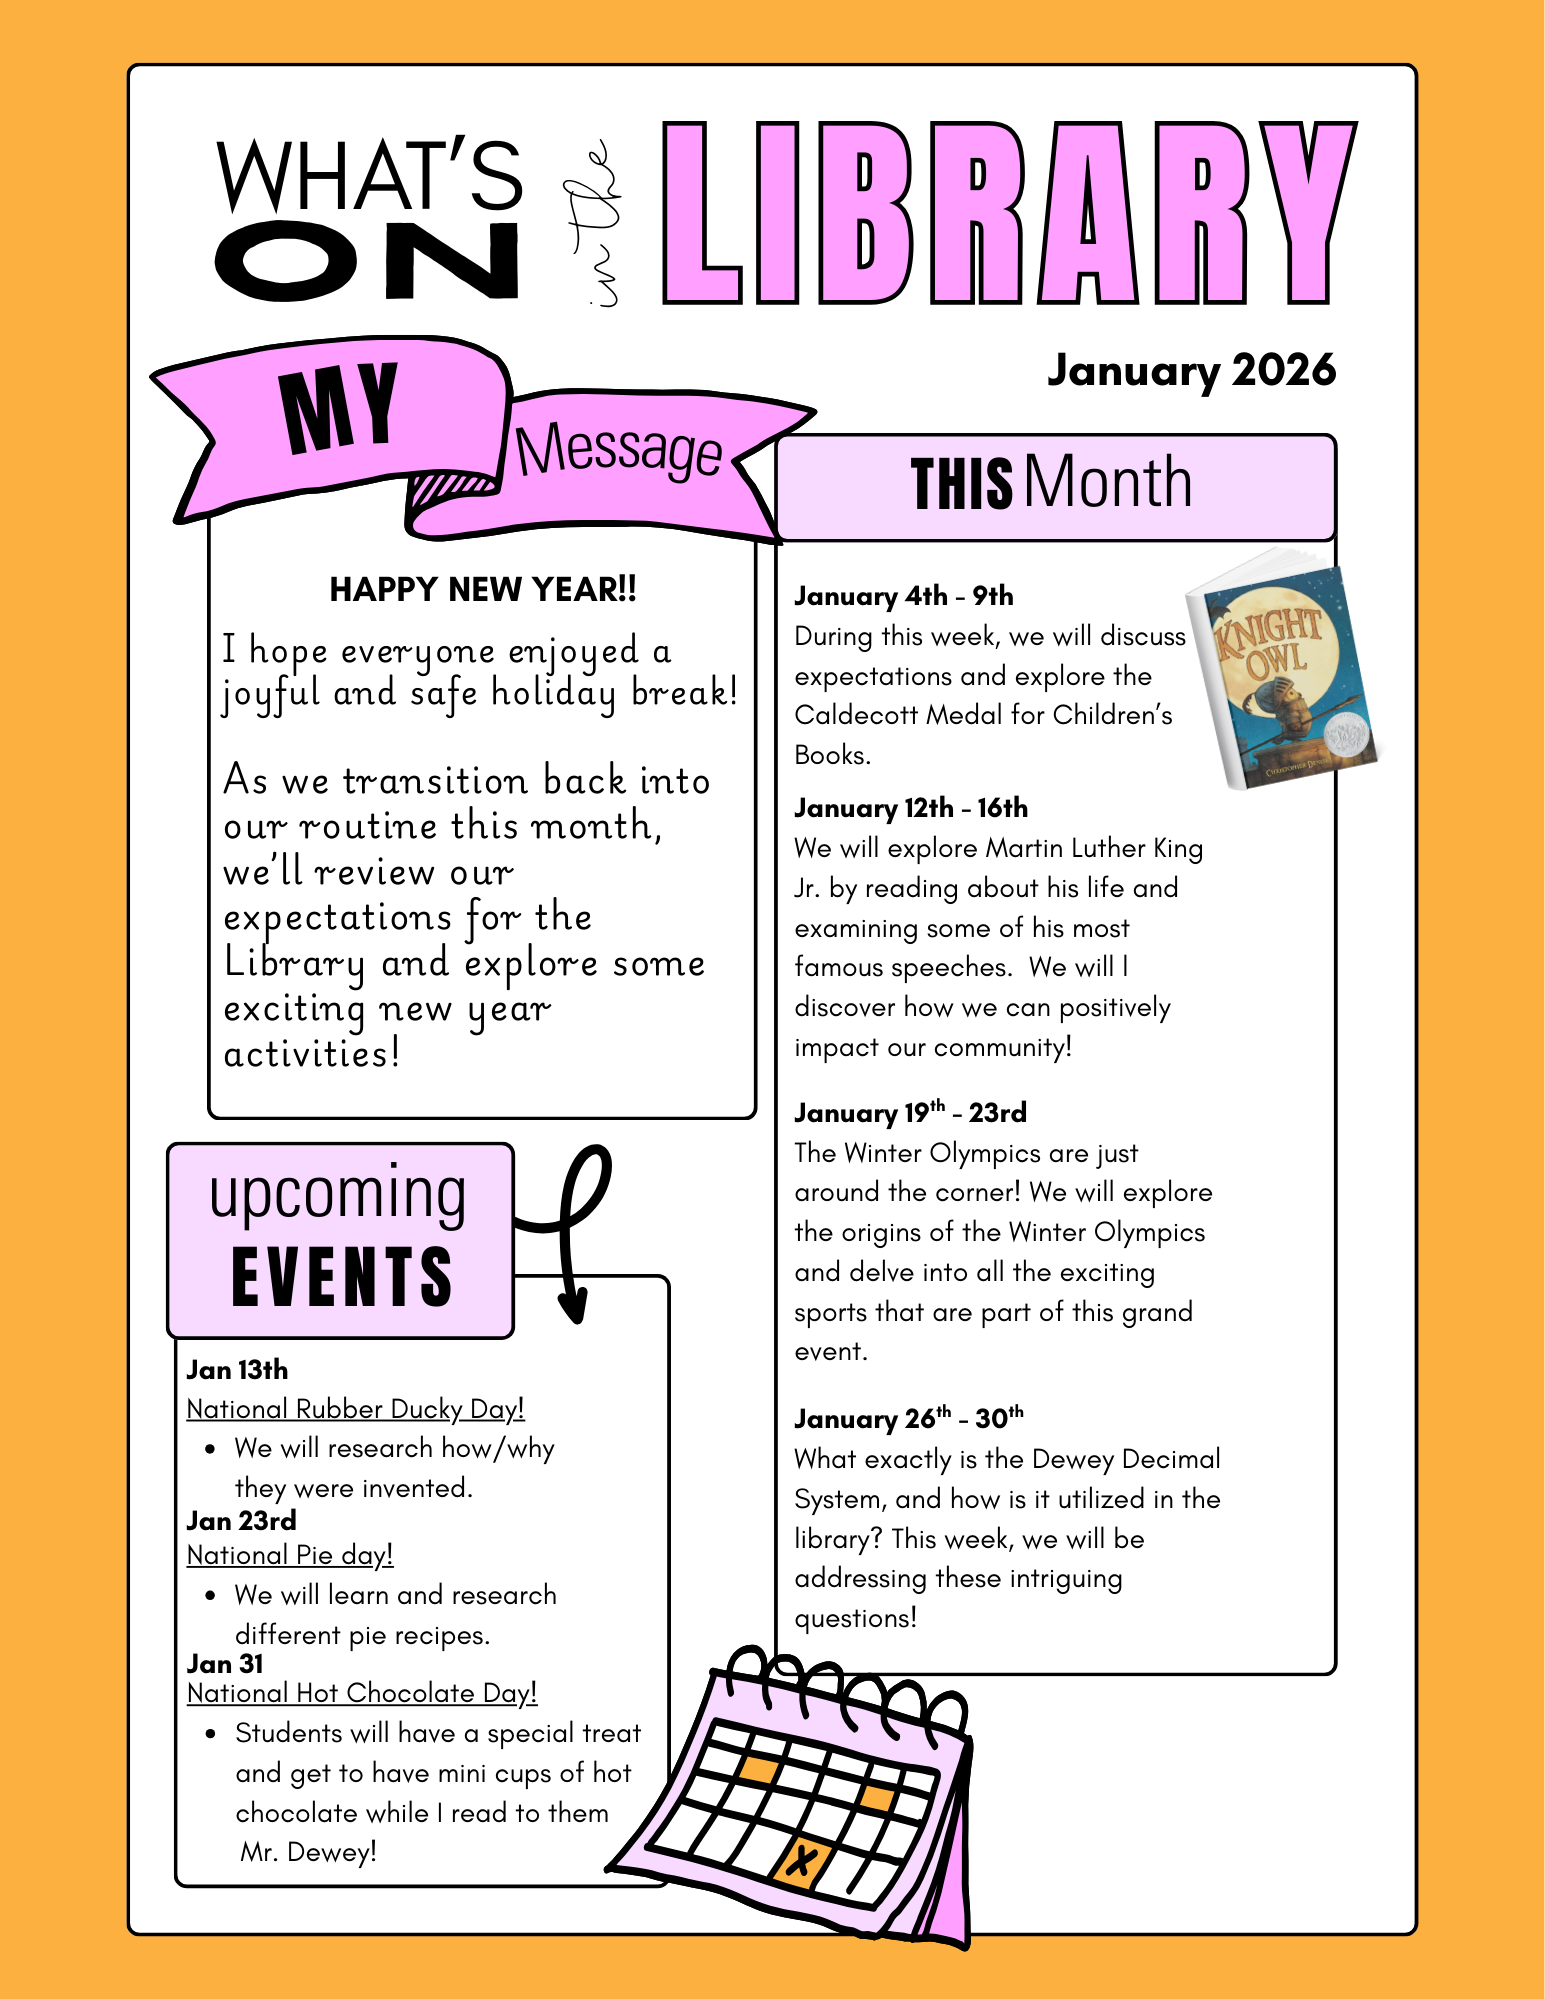 WHAT'S
ON
in the
LIBRARY
January 2026
MY
Message
HAPPY NEW YEAR!!
I hope everyone enjoyed a
joyful and safe holiday break!
As we transition back into
our routine this month,
we'll review our
expectations for the
Library and explore some
exciting new year
activities!
THIS Month
January 4th - 9th
During this week, we will discuss
expectations and explore the
Caldecott Medal for Children's
Books.
KNIGHT
OWL
CHRISTOPHER DENISE
January 12th - 16th
We will explore Martin Luther King
Jr. by reading about his life and
examining some of his most
famous speeches.  We will l
discover how we can positively
impact our community!
January 19th - 23rd
The Winter Olympics are just
around the corner! We will explore
the origins of the Winter Olympics
and delve into all the exciting
sports that are part of this grand
event.
January 26th - 30th
What exactly is the Dewey Decimal
System, and how is it utilized in the
library? This week, we will be
addressing these intriguing
questions!
upcoming
EVENTS
Jan 13th
National Rubber Ducky Day!
• We will research how/why
they were invented.
Jan 23rd
National Pie day!
• We will learn and research
different pie recipes.
Jan 31
National Hot Chocolate Day!
• Students will have a special treat
and get to have mini cups of hot
chocolate while I read to them
Mr. Dewey!
X